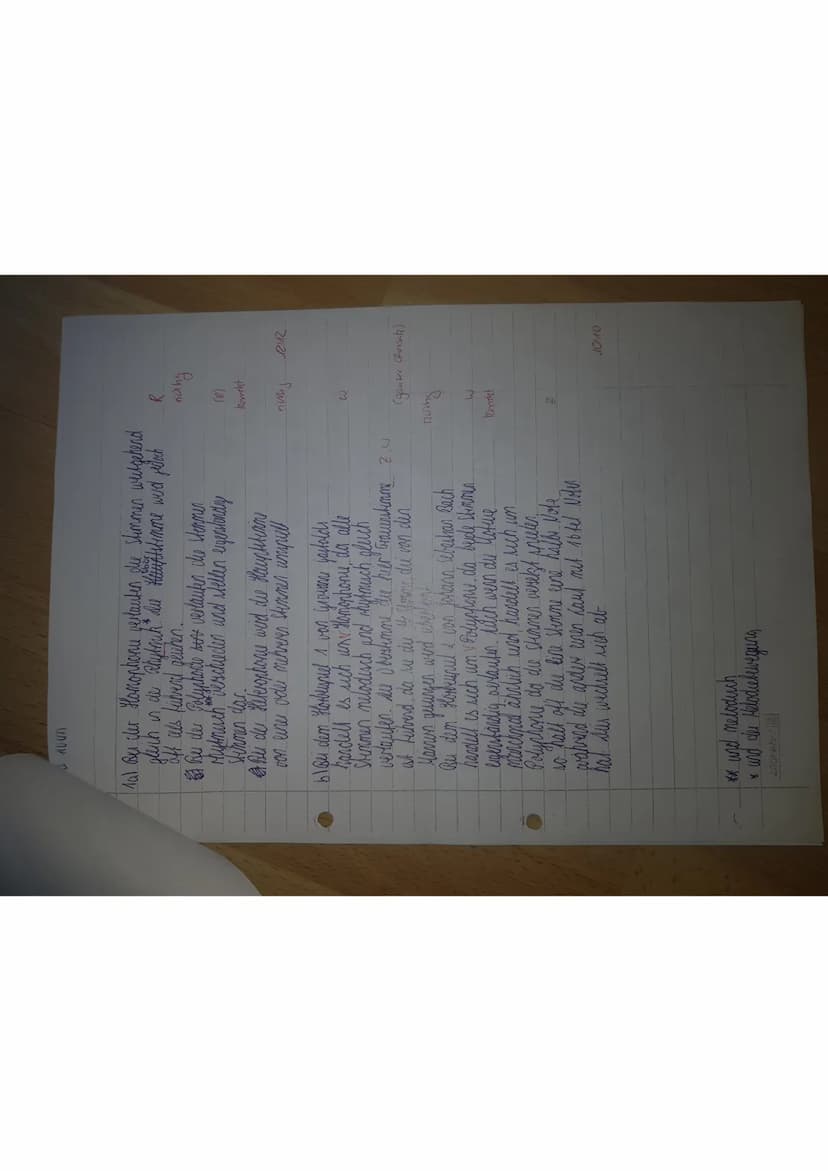 1a) Bei der Homophonie verlaufen die Stimmen weitgehend
gleich in der Rhythmik* die Hauptstimme wird jedoch
oft als führend gesehen.
R
richtig
Bei der Polyphonie verlaufen die Stimmen
rhythmisch** verschieden und stellen eigenständig
Stimmen dar.
(A)
korrekt
Bei der Heterophonie wird die Hauptstimme
von einer oder mehreren Stimmen umspielt
richtig 12/12
b) Bei dem Hörbeispiel 1 von
handelt es sich um Homophonie, da alle
W
Stimmen melodisch und rhythmisch gleich
verlaufen, die Oberstimme, die hier Frauenstimme Z, W
ist führend, da sie die Stimme, die von den
Männern gesungen wird
richtig
Bei dem Hörbeispiel 2 von Johann Sebastian Bach
handelt es sich um Polyphonie da beide Stimmen
W
eigenständig verlaufen. Auch wenn die Motive
korrekt
manchmal ähnlich sind handelt es sich um
Polyphonie da die Stimmen versetzt spielen
so hält oft die eine Stimme eine halbe Note
Z
während die andere einen Lauf mit 16tel Noten
hat dies wechselt sich ab.
10/10
** und melodisch
* und der Melodiebewegung